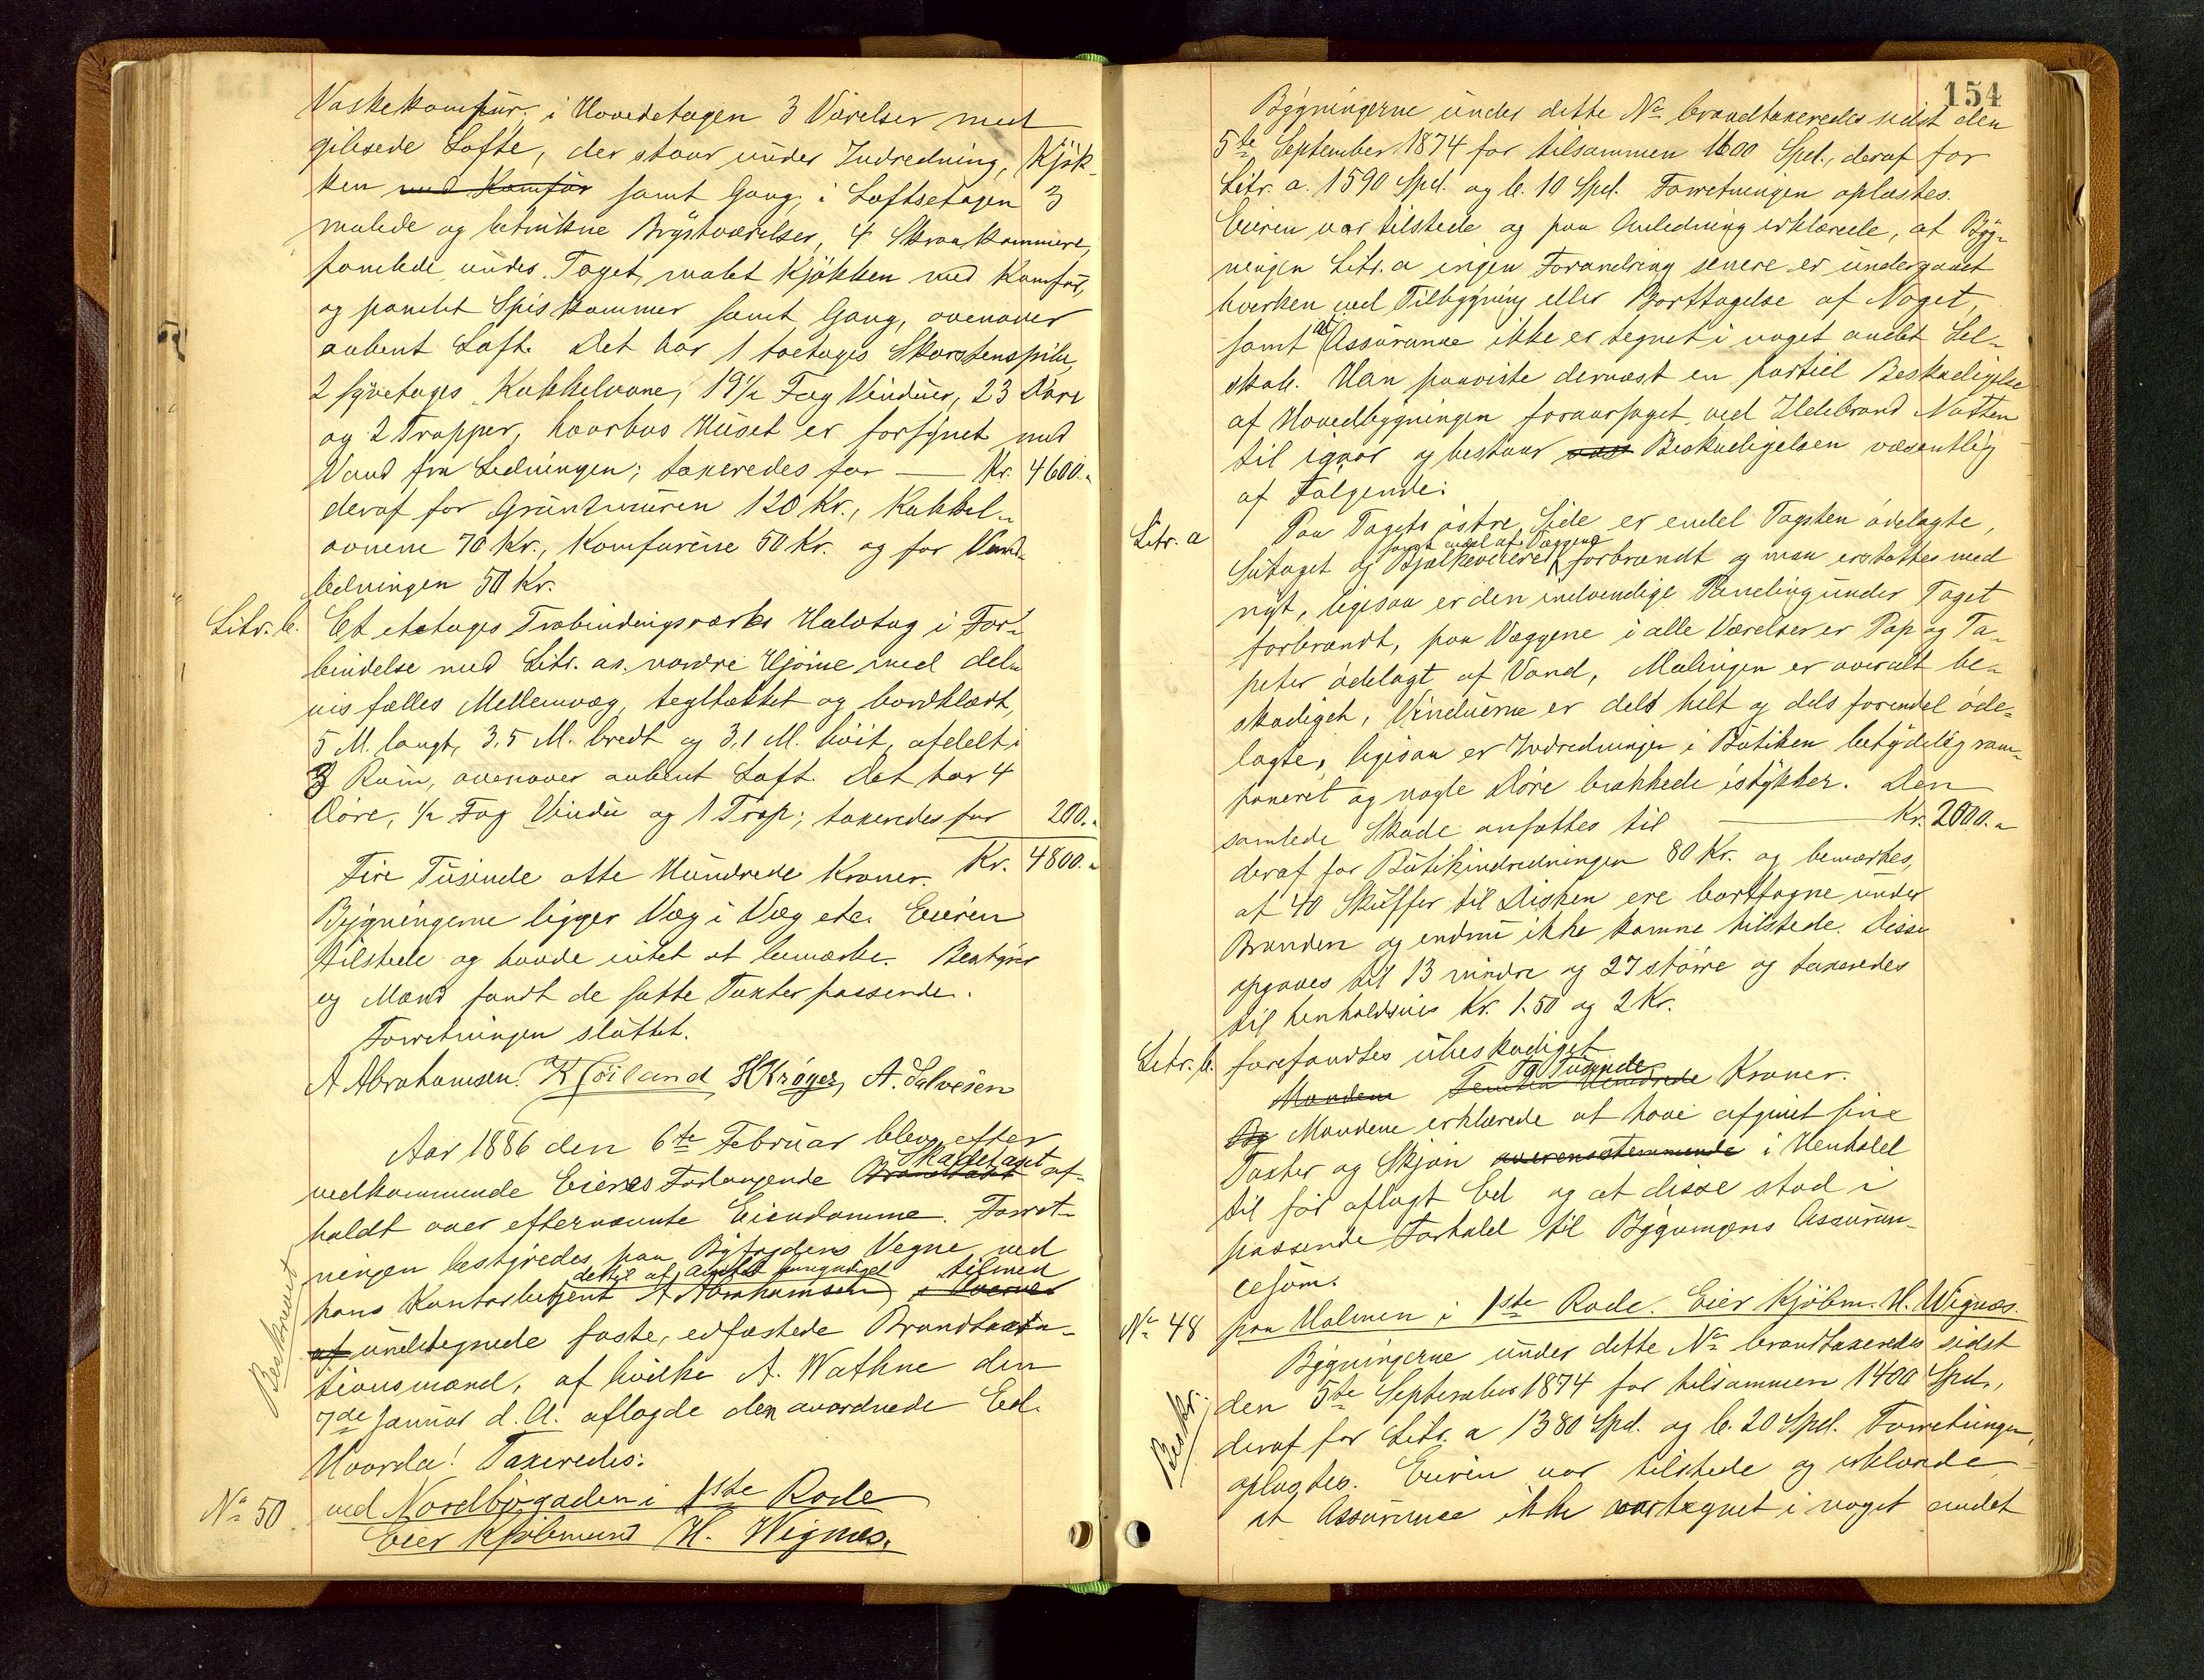 Vaskekomfur; i Hovedetagen 3 Værelser med
gibsede Lofte, der staar under Indredning, Kjøk-
ken med Komfur samt Gang; i Loftsetagen 3
malede og betrukne Brystværelser, 4 Skraakammere,
panelede under Taget, malet Kjøkken med Komfur,
og panelet Spiskammer samt Gang, ovenover
aabent Loft. Det har 1 toetages Skorstenspibe,
2 Kakkelovne, 19½ Fag Vinduer, 23 Døre
og 2 Trapper, hvorhos Huset er forsynet med
Vand fra Ledningen; taxeredes for — Kr. 4600.-
deraf for Grundmuren 120 Kr., Kakkel-
ovnene 70 Kr., Komfurene 50 Kr. og for Vand-
ledningen 50 Kr.
Litr. b. Et etetages Træbindingsværks Halvtag i For-
bindelse med Litr. a's nordre Hjørne med del-
vis fælles Mellemvæg, tegltækket og bordklædt,
5 M. langt, 3,5 M. bredt og 3,1 M. høit, afdelt i
3 Rum, ovenover aabent Loft. Det har 4
Døre, ½ Fag Vindu og 1 Trap; taxeredes for 200.-
Fire Tusinde otte Hundrede Kroner. Kr. 4800.-
Bygningerne ligger Væg i Væg etc. Eieren
tilstede og havde intet at bemærke. Bestyrer
og Mænd fandt de satte Taxter passende.
Forretningen sluttet.
A Abrahamsen. K Goiland HKrøger, A. Salvesen
Aar 1886 den 6te Februar blev efter
vedkommende Eieres Forlangende Brandtaxt Skadetaxt af-
holdt over efternævnte Eiendomme. Forret-
ningen bestyredes paa Byfogdens Vegne ved
hans Kontorbetjent dertil af Amtet A Abrahamsen
Beskrevet
af undertegnede faste, edfæstede Brandtaxta-
tionsmænd, af hvilke A. Wathne den
7de Januar d. A. aflagde den anordnede Ed.
Hvorda! Taxeredes:
No 50 ved Nordbøgaden i 1ste Rode
Eier Kjøbmand H. Wignæs.
154
Bygningerne under dette No brandtaxeredes sidst den
5te September 1874 for tilsammen 1600 Spd., deraf for
Litr. a. 1590 Spd. og b. 10 Spd. Forretningen oplæstes.
Eieren var tilstede og paa Anledning erklærede, at Byg-
ningen Litr. a ingen Forandring senere er undergaaet
hverken ved Tilbygning eller Borttagelse af Noget,
samt at Assurance ikke er tegnet i noget andet Sel-
skab. Han paaviste dernæst en partiel Beskadigelse
af Hovedbygningen foraarsaget ved Ildebrand Natten
til igaar og bestaar Beskadigelsen væsentlig
af Følgende:
Litr. a Paa Tagets østre Side er endel Tagsten ødelagte,
Sutaget og Bjælkeværet samt endel af Væggene forbrændt og maa erstattes med
nyt, ligesaa er den indvendige Paneling under Taget
forbrændt, paa Væggene i alle Værelser er Pap og Ta-
peter ødelagt af Vand, Malingen er overalt be-
skadiget, Vinduerne er dels helt og dels forendel øde-
lagte, ligesaa er Indredningen i Butiken betydelig ram-
poneret og nogle Døre brækkede istykker. Den
samlede Skade ansættes til — Kr. 2000.-
deraf for Butikindredningen 80 Kr. og bemærkes,
at 40 Skuffer til Disken ere borttagne under
Branden og endnu ikke komne tilstede. Disse
opgaves til 13 mindre og 27 større og taxeredes
til henholdsvis Kr. 1.50 og 2 Kr.
Litr. b. forefandtes ubeskadiget
Mændene Hundrede To Tusinde Kroner.
Og Mændene erklærede at have afgivet sine
Taxter og Skjøn overensstemmende i Henhold
til før aflagt Ed og at disse stod i
passende Forhold til Bygningens Assuran-
cesum.
No 48 paa Holmen i 1ste Rode. Eier Kjøbm. H. Wignæs.
Bygningerne under dette No brandtaxeredes sidst
Beskr.
den 5te September 1874 for tilsammen 1400 Spd.,
deraf for Litr. a 1380 Spd. og b. 20 Spd. Forretningen
oplæstes. Eieren var tilstede og erklærede
at Assurance ikke var tegnet i noget andet